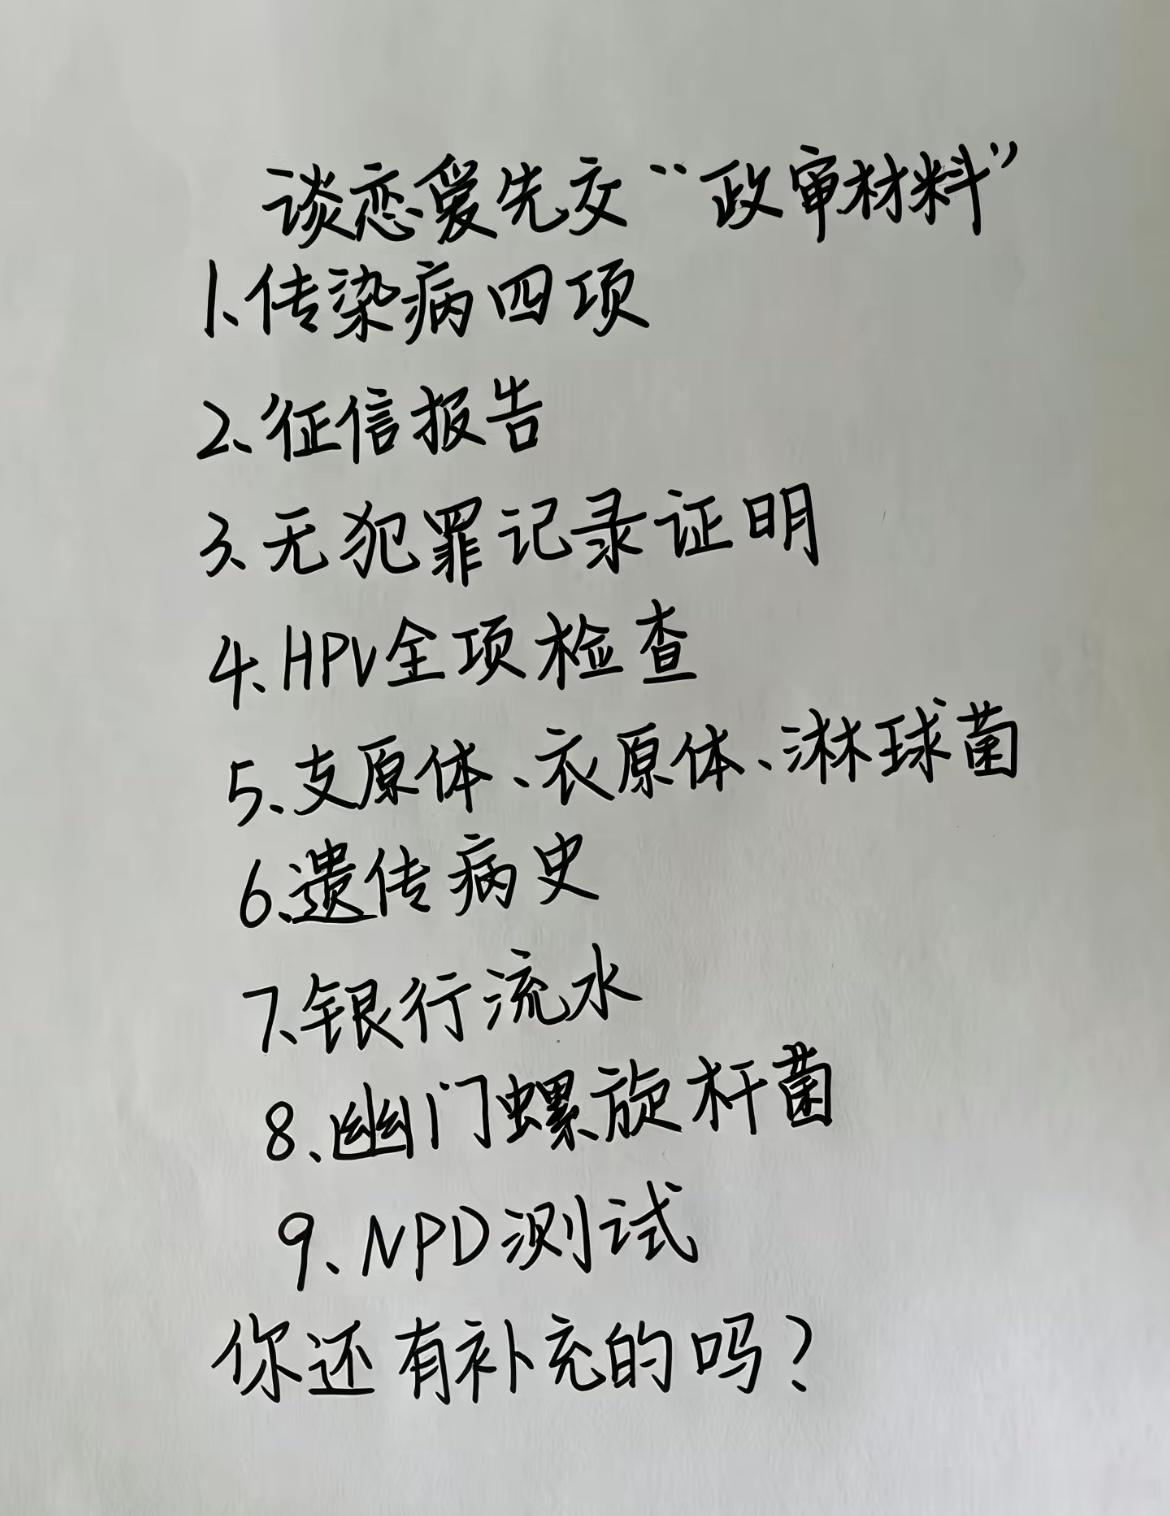 谈恋爱先交“政审材料”
1、传染病四项
2、征信报告
3、无犯罪记录证明
4、HPV全项检查
5、支原体、衣原体、淋球菌
6、遗传病史
7、银行流水
8、幽门螺旋杆菌
9、NPD测试
你还有补充的吗？